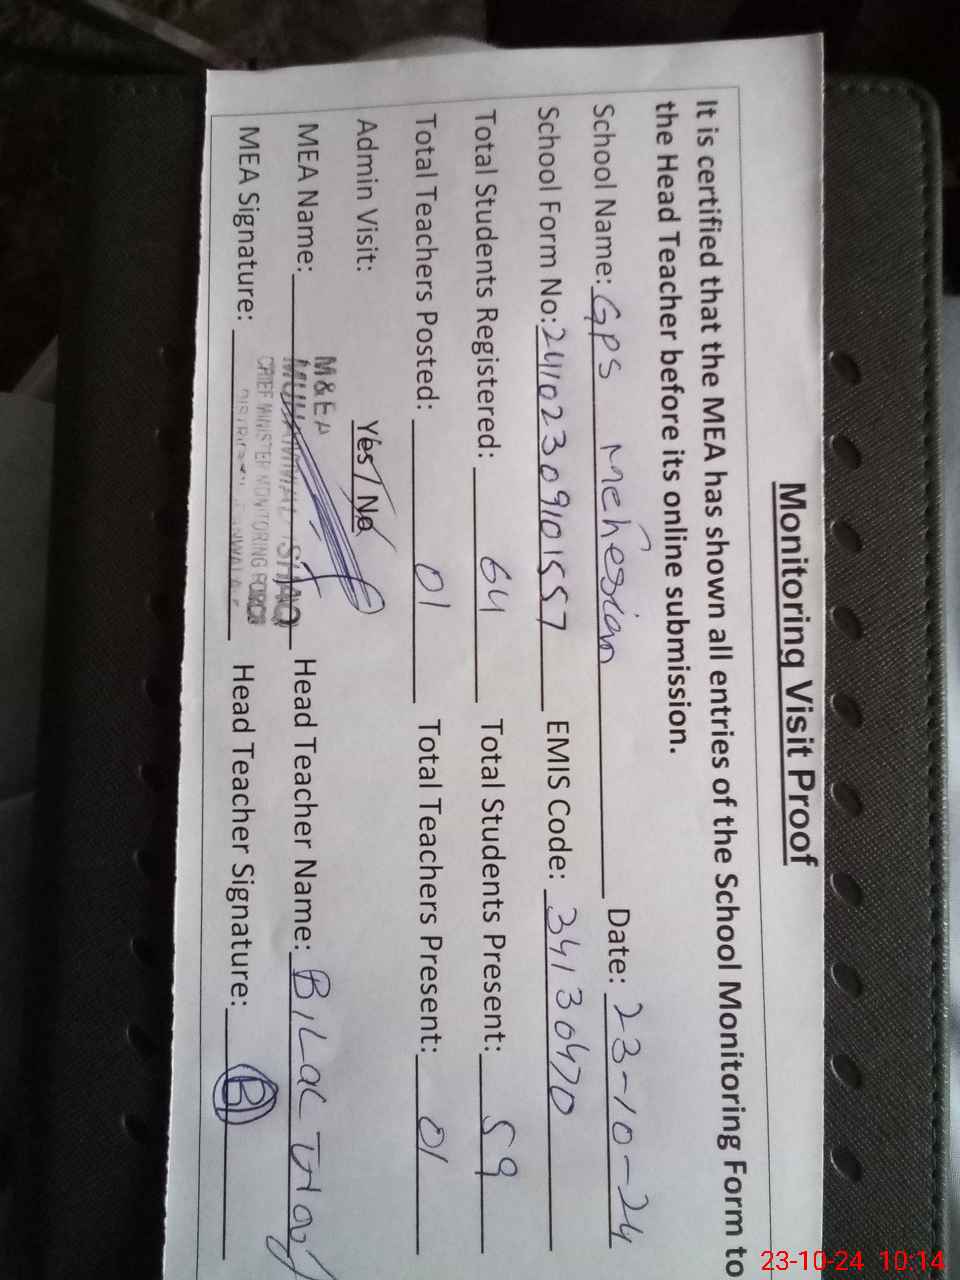 Monitoring Visit Proof
It is certified that the MEA has shown all entries of the School Monitoring Form to
the Head Teacher before its online submission.
School Name: GPS Date: 23-10-24
School Form No: 24102309101557 EMIS Code: 34130470
Total Students Registered: 64 Total Students Present: 59
Total Teachers Posted: 01 Total Teachers Present: 01
Admin Visit: Yes / No
M & EA
MEA Name: MUHAMMAD ISHAQ Head Teacher Name: BILAL
CHIEF MINISTER MONITORING FORCE
MEA Signature: Head Teacher Signature: B
DISTRICT
23-10-24 10:14